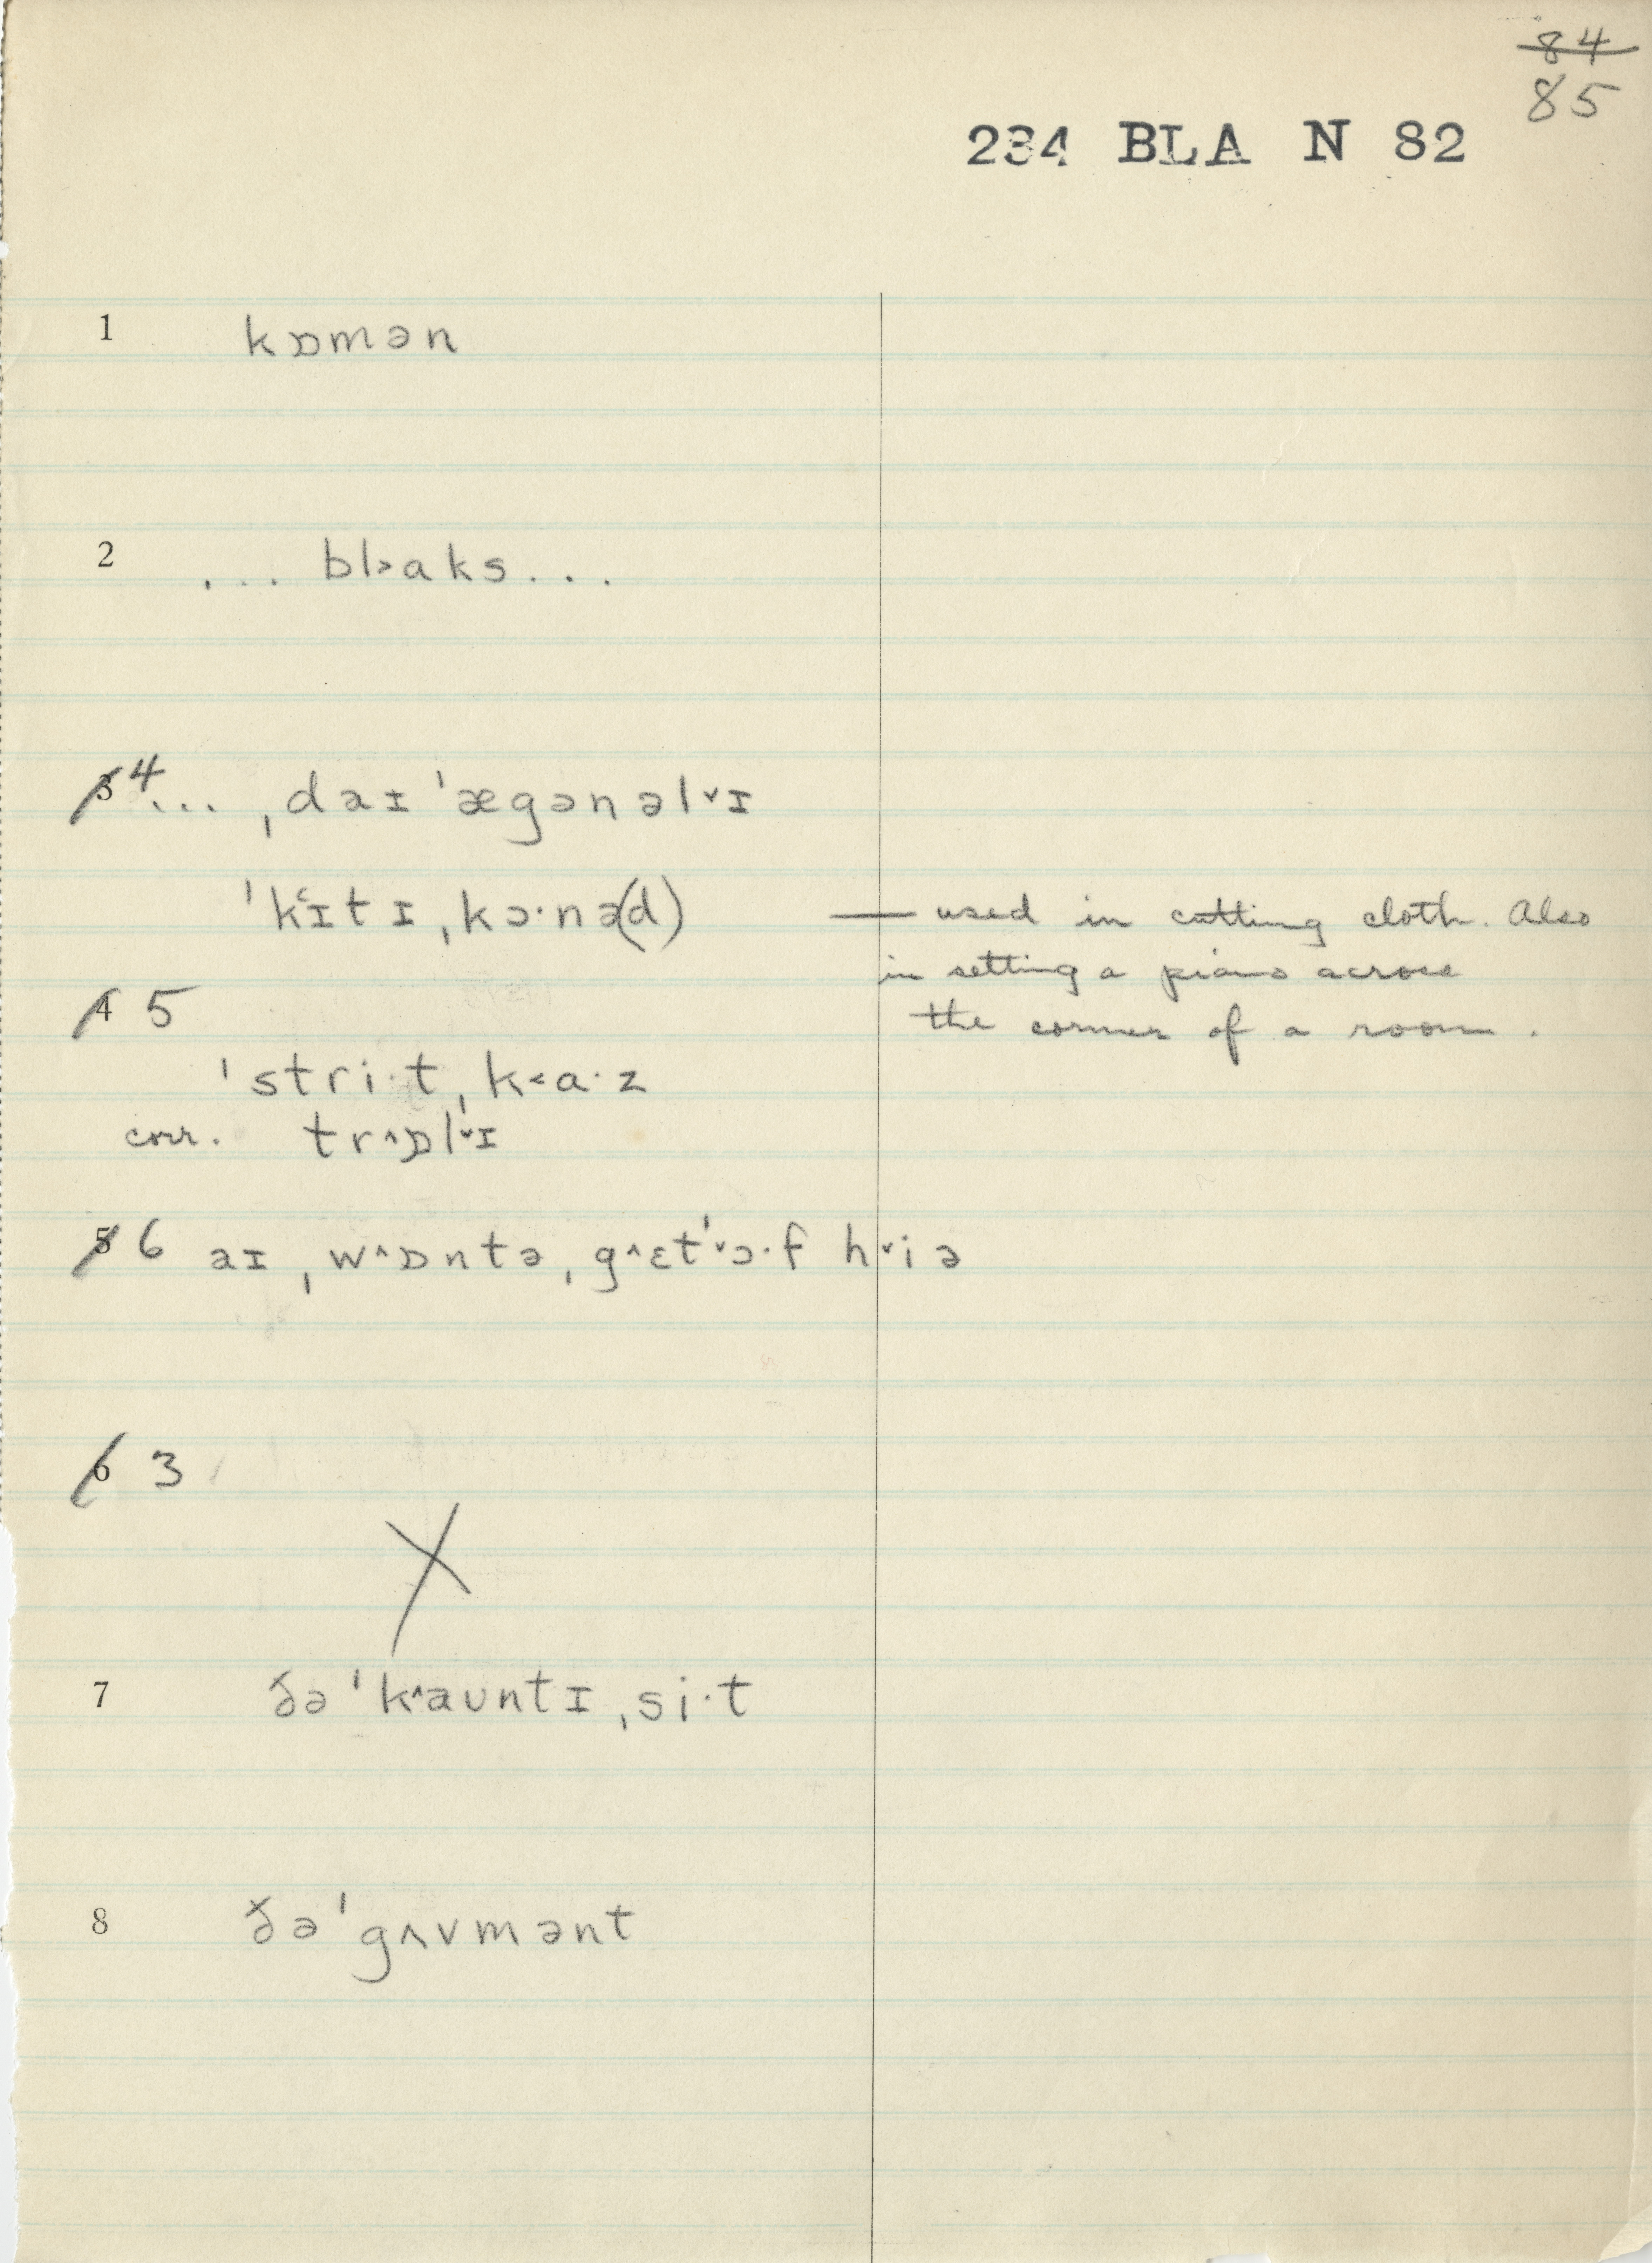 84
85
234 BLA N 82
1 kɒmən
2 ... bl˃aks...
3 4 ... ˌdaɪˈægənəl˅ɪ
ˈk˂ɪtɪˌkɔ·nə(d) — used in cutting cloth. Also
in setting a piano across
the corner of a room.
4 5
ˈstri·tˌk˂a·z
corr. tr^ɒl˅ɪ
5 6 aɪˌw^ɒntəˌg^ɛtˈ˅ɔ·f h˅iə
6 3
X
7 ðəˈk^aʊntɪˌsi·t
8 ðəˈgʌvmənt